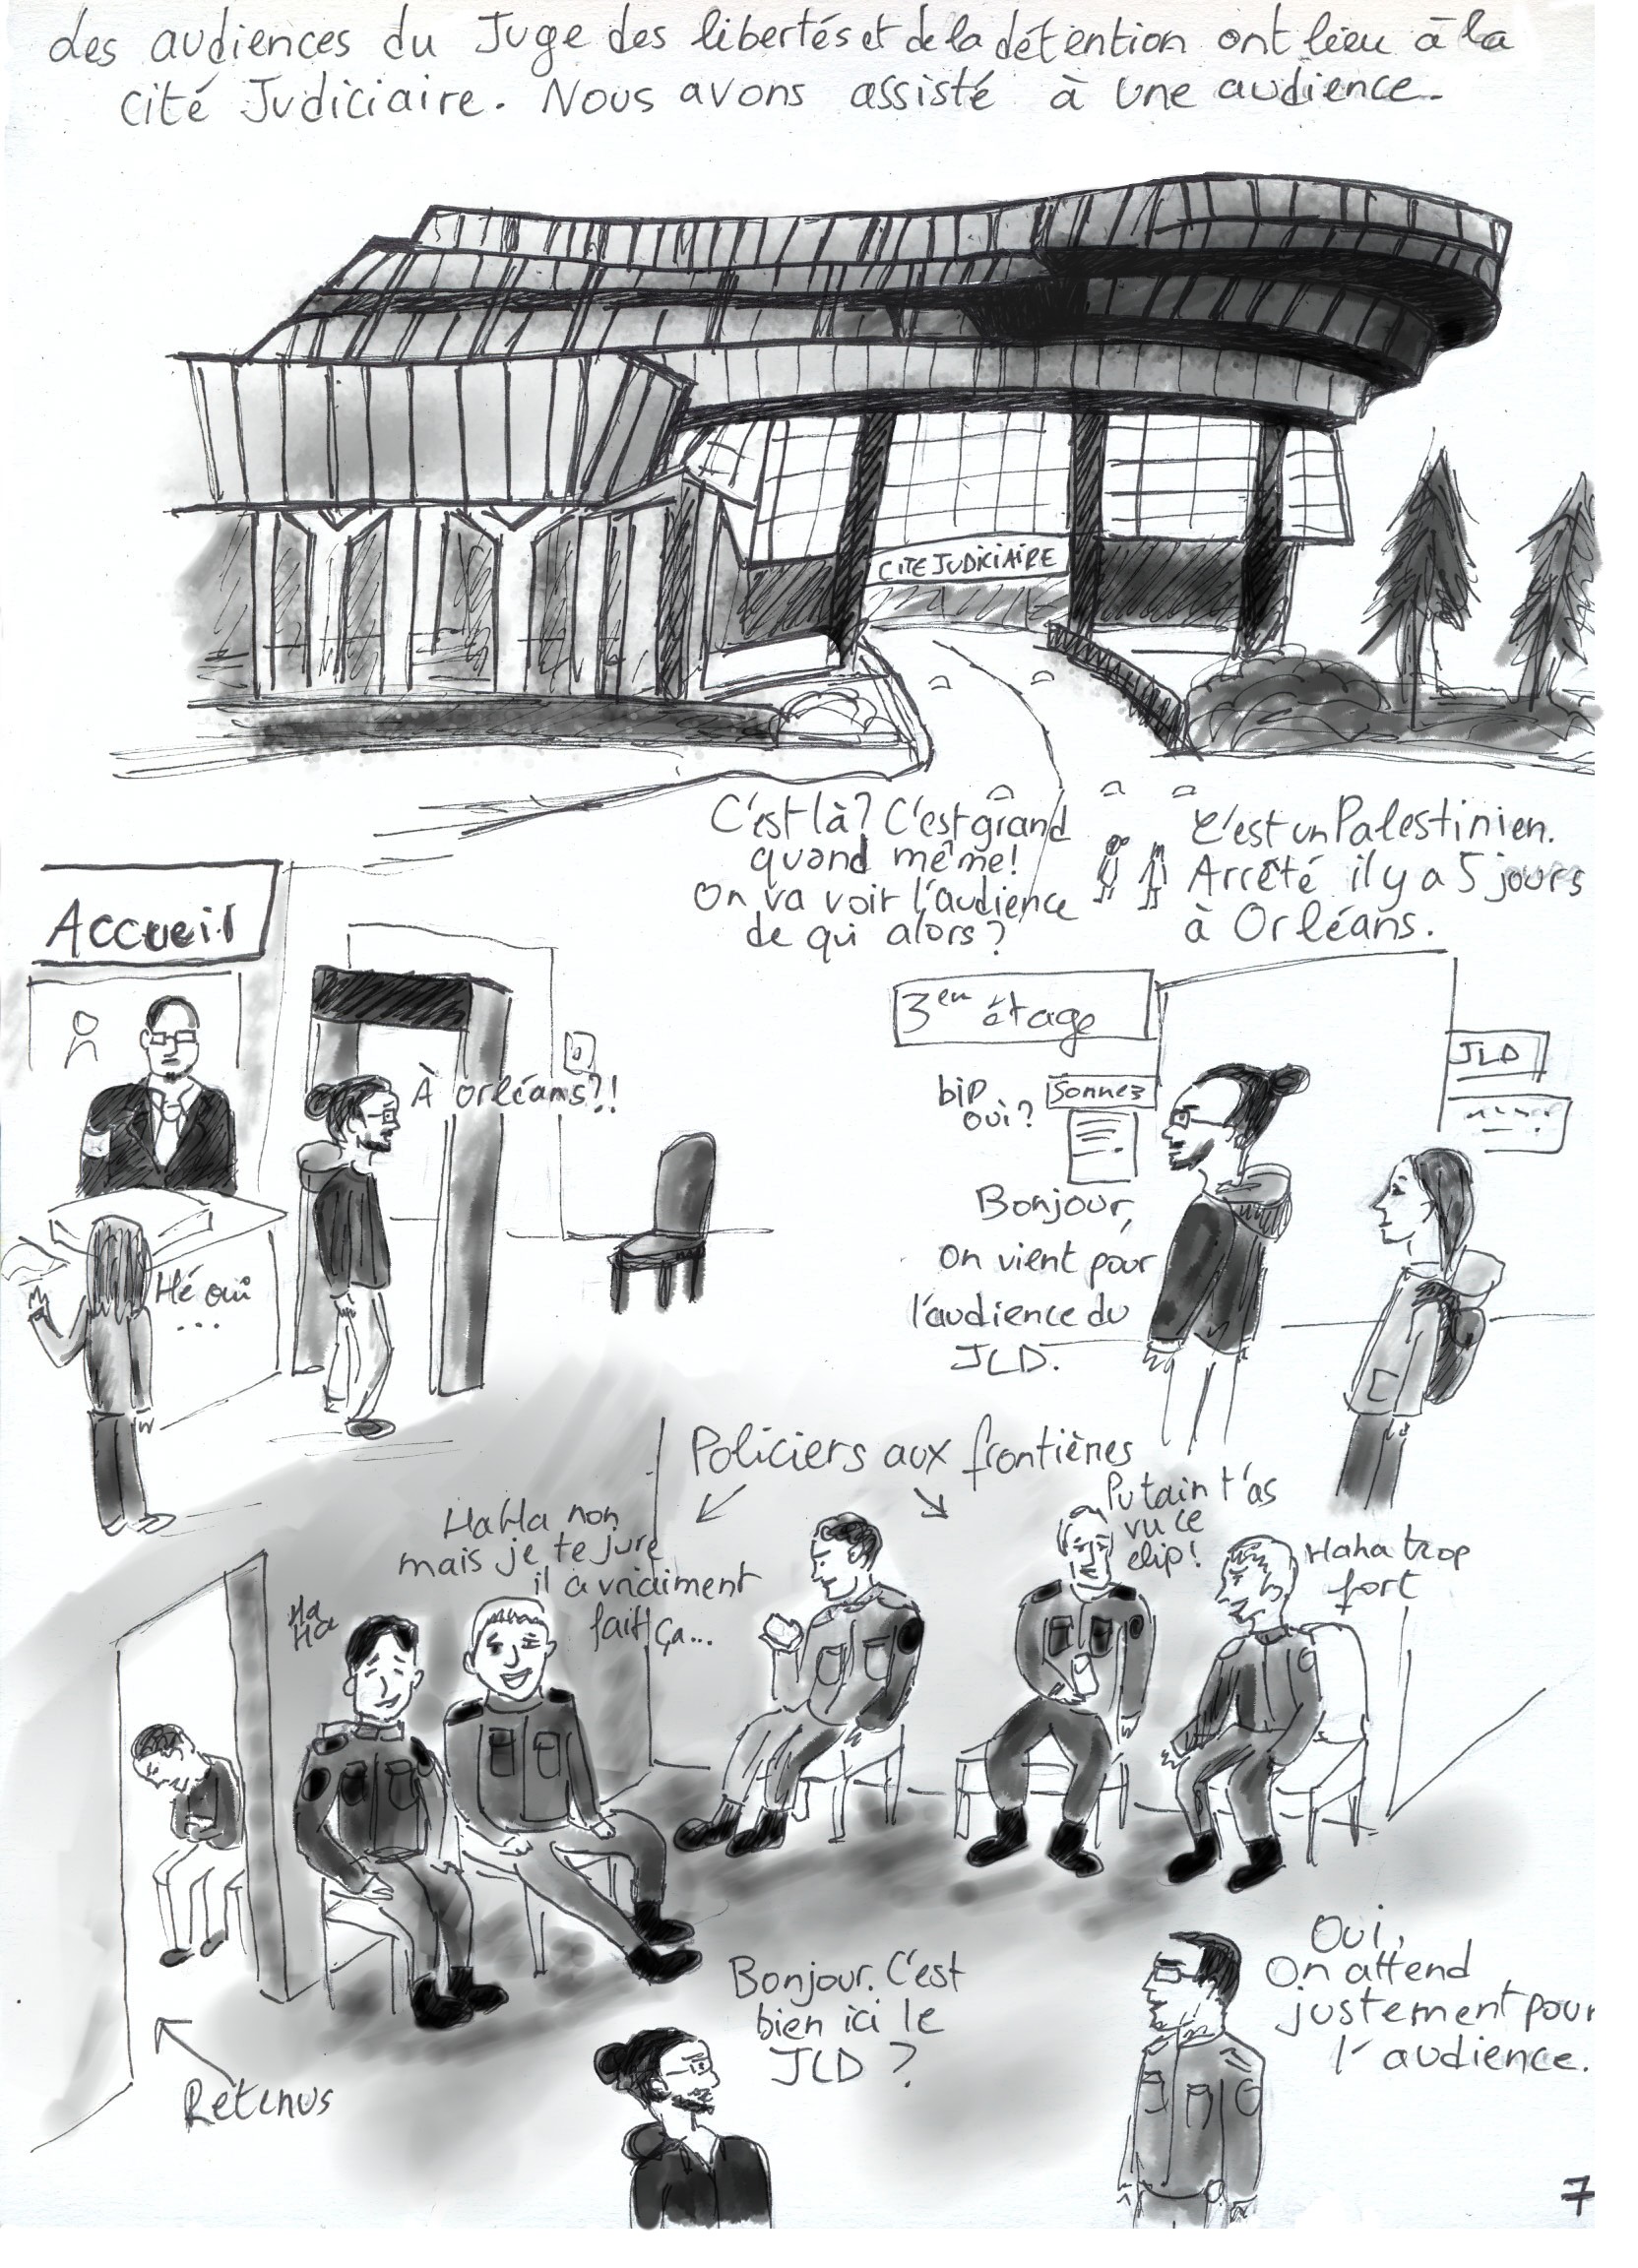 des audiences du Juge des libertés et de la détention ont lieu à la
cité Judiciaire. Nous avons assisté à une audience.
CITE JUDICIAIRE
C'est là? C'est grand
quand même!
On va voir l'audience
de qui alors?
C'est un Palestinien.
Arrêté il y a 5 jours
à Orléans.
Accueil
À Orléans?!
Hé oui
...
3em étage
JLD
bip
oui?
Sonnez
Bonjour,
on vient pour
l'audience du
JLD.
Policiers aux frontières
HaHa non
mais je te jure
il a vraiment
fait ça...
Ha
Ha
Putain t'as
vu ce
clip!
Haha trop
fort
Retenus
Bonjour. C'est
bien ici le
JLD?
Oui,
On attend
justement pour
l'audience.
7